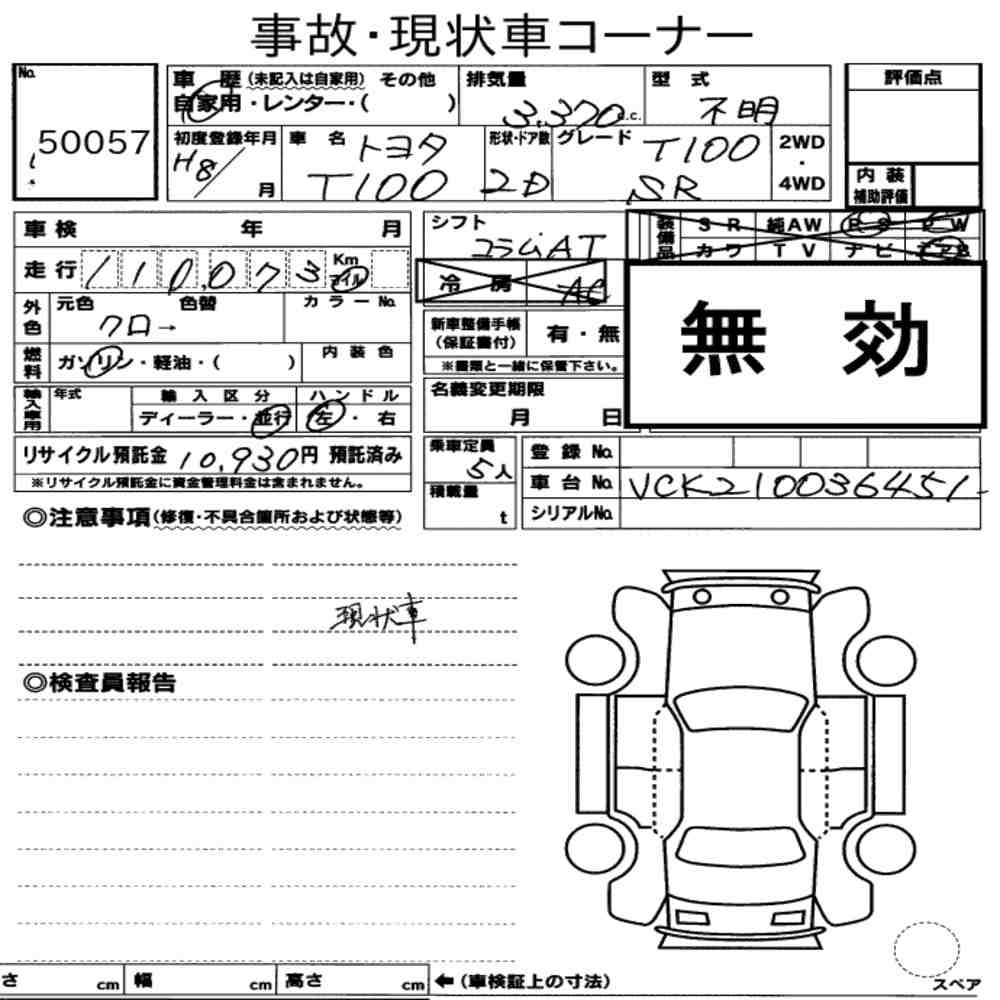 事故・現状車コーナー
No. 50057
車歴(未記入は自家用) その他
自家用・レンター・( )
排気量 3,370 c.c.
型式 不明
評価点
初度登録年月 H8/ 月
車名 トヨタ T100
形状・ドア数 2D
グレード T100 SR
2WD・4WD
内装補助評価
車検 年 月
シフト コラムAT
装備品 SR 純AW PS PW
カワ TV ナビ エアB
走行 110,073 Km マイル
冷房 AC
無効
外色 元色 色替 カラーNo.
クロ→
新車整備手帳(保証書付) 有・無
※書類と一緒に保管下さい。
燃料 ガソリン・軽油・( ) 内装色
名義変更期限 月 日
輸入車用 年式 輸入区分 ハンドル
ディーラー・並行 左・右
リサイクル預託金 10,930円 預託済み
※リサイクル預託金に資金管理料金は含まれません。
乗車定員 5人
積載量 t
登録No.
車台No. VCK210036451-
シリアルNo.
◎注意事項(修復・不具合箇所および状態等)
現状車
◎検査員報告
さ cm 幅 cm 高さ cm ←(車検証上の寸法)
スペア